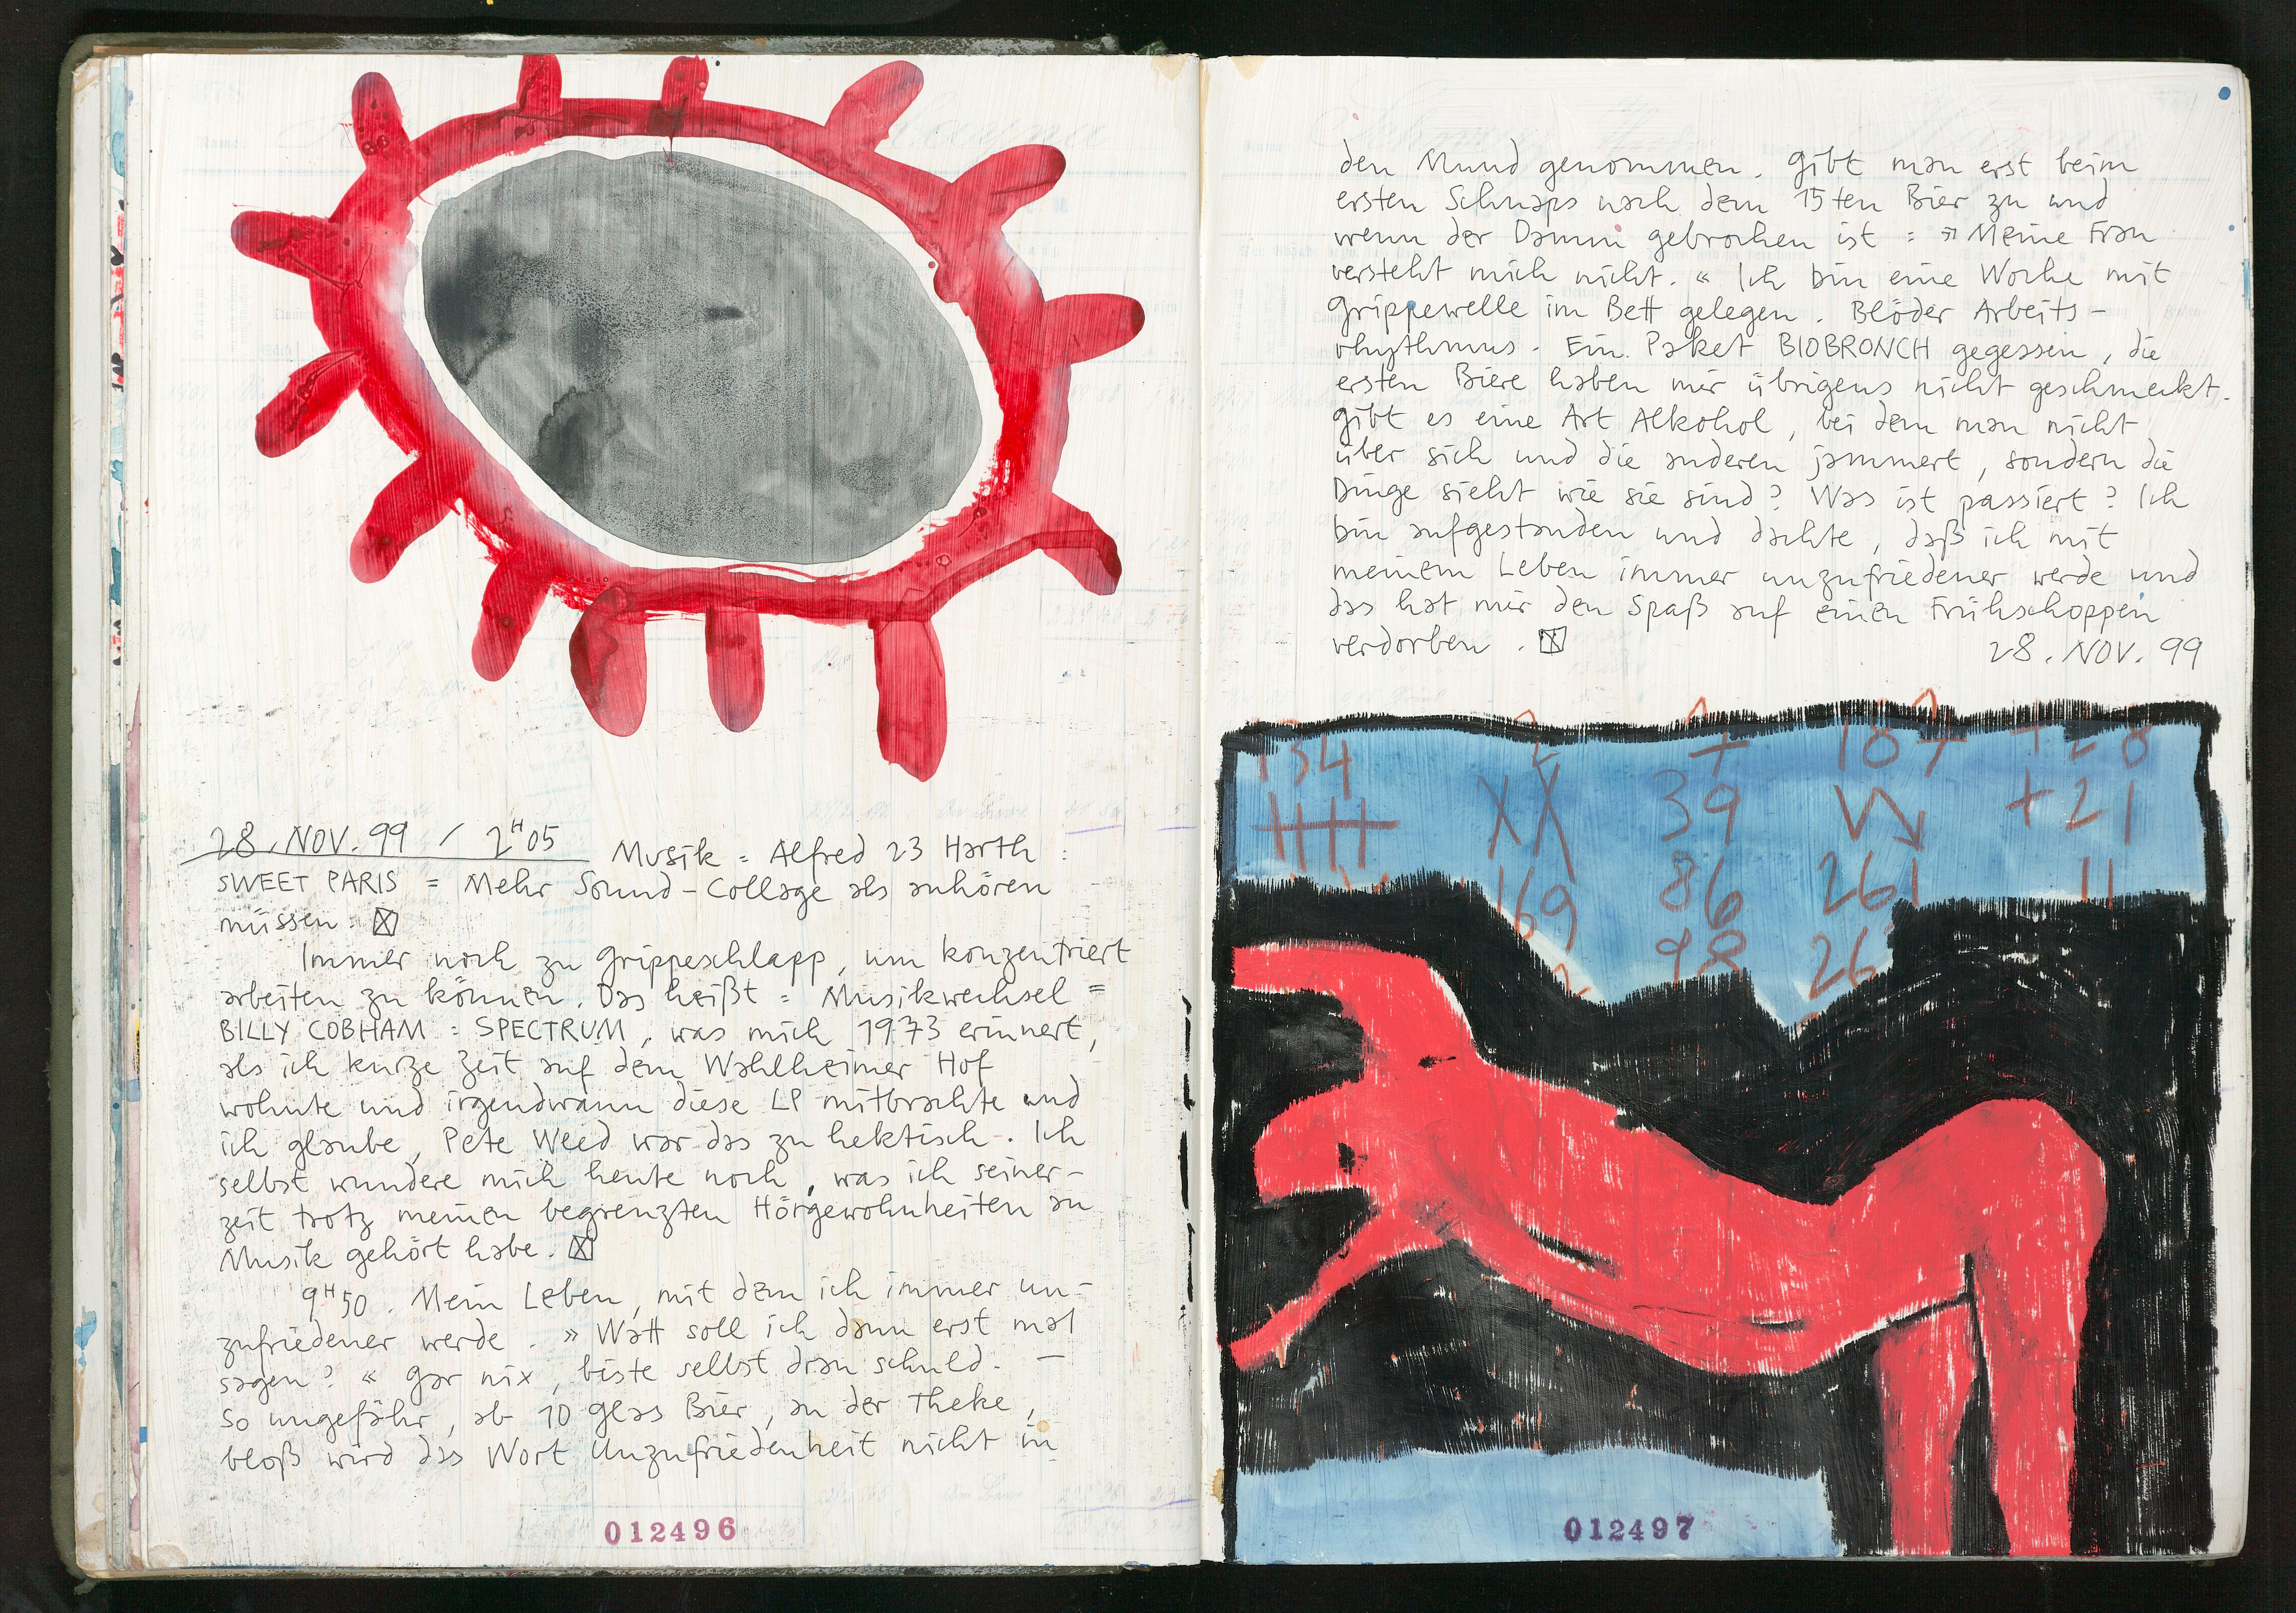 28. NOV. 99 / 2H05 Musik = Alfred 23 Harth :
SWEET PARIS = Mehr Sound-Collage als anhören
müssen. ☒
Immer noch zu grippeschlapp, um konzentriert
arbeiten zu können. Das heißt = Musikwechsel =
BILLY COBHAM : SPECTRUM, was mich 1973 erinnert,
als ich kurze Zeit auf dem Wahlheimer Hof
wohnte und irgendwann diese LP mitbrachte und
ich glaube, Pete Weed war das zu hektisch. Ich
selbst wundere mich heute noch, was ich seiner-
zeit trotz meinen begrenzten Hörgewohnheiten an
Musik gehört habe. ☒
9H50. Mein Leben, mit dem ich immer un-
zufriedener werde. » Watt soll ich dann erst mal
sagen? « Gar nix, biste selbst dran schuld. —
So ungefähr, ab 10 Glas Bier, an der Theke,
bloß wird das Wort Unzufriedenheit nicht in
012496
den Mund genommen. Gibt man erst beim
ersten Schnaps nach dem 15ten Bier zu und
wenn der Damm gebrochen ist : » Meine Frau
versteht mich nicht. « Ich bin eine Woche mit
Grippewelle im Bett gelegen. Blöder Arbeits-
rhythmus. Ein Paket BIOBRONCH gegessen, die
ersten Biere haben mir übrigens nicht geschmeckt.
Gibt es eine Art Alkohol, bei dem man nicht
über sich und die anderen jammert, sondern die
Dinge sieht wie sie sind? Was ist passiert? Ich
bin aufgestanden und dachte, daß ich mit
meinem Leben immer unzufriedener werde und
das hat mir den Spaß auf einen Frühschoppen
verdorben. ☒
28. NOV. 99
134 187 +28
XX 39 +21
169 86 261 11
98 26
012497